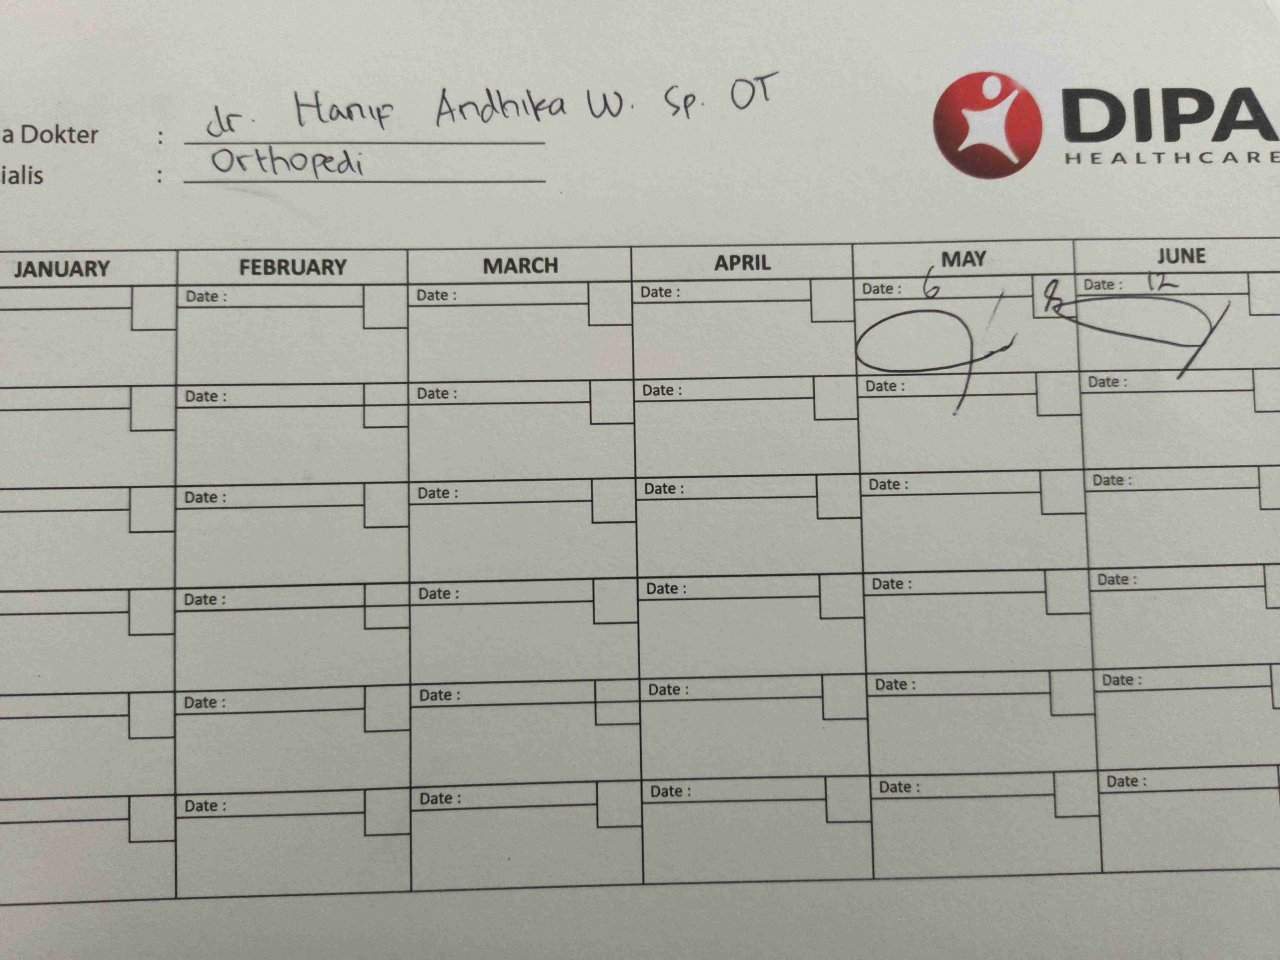 dr. Hanif Andhika W. Sp. OT
a Dokter :
Orthopedi
ialis :
DIPA
HEALTHCARE
JANUARY FEBRUARY MARCH APRIL MAY JUNE
Date : Date : Date : Date : 6 Date : 12
Date : Date : Date : Date : Date :
Date : Date : Date : Date : Date :
Date : Date : Date : Date : Date :
Date : Date : Date : Date : Date :
Date : Date : Date : Date : Date :